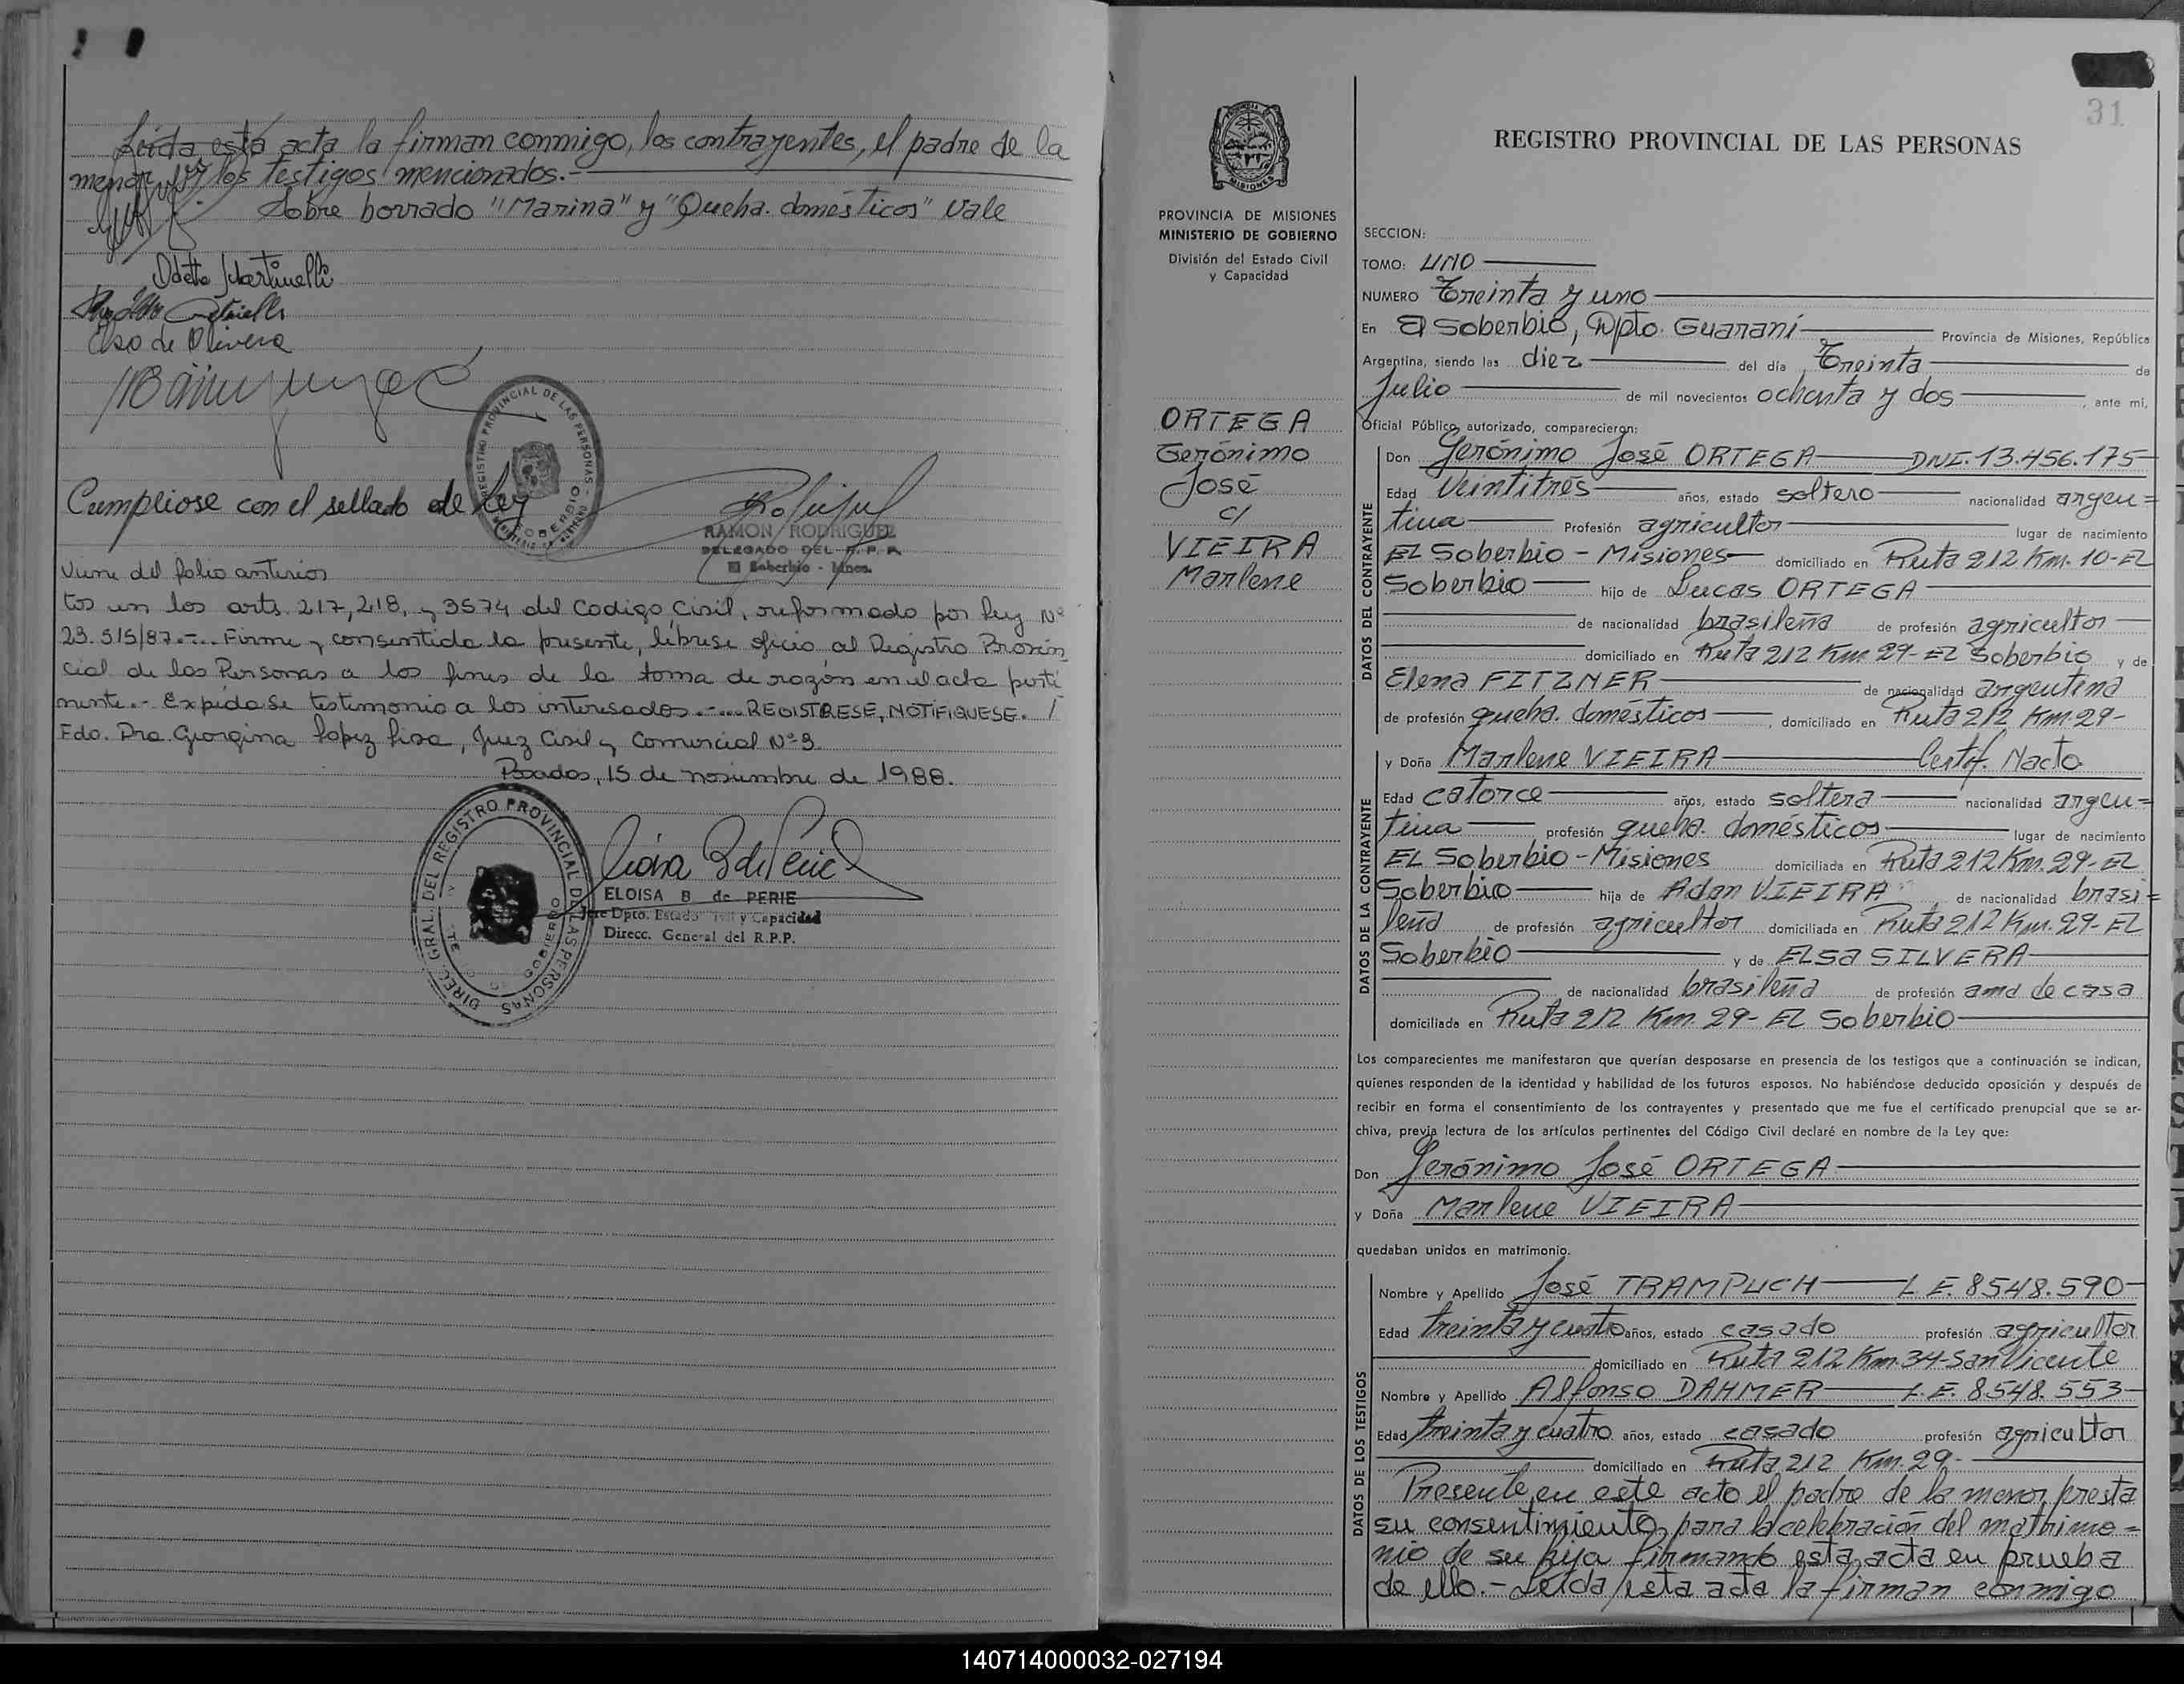 Leída está acta la firman conmigo, los contrayentes, el padre de la
menor y los testigos mencionados.-
Sobre borrado "Marina" y "Queha. domésticos" Vale
Odete Martinelli
Elso de Olivera
REGISTRO PROVINCIAL DE LAS PERSONAS
SOBERBIO
Cumpliose con el sellado de ley
RAMON RODRIGUEZ
DELEGADO DEL R.P.P.
El Soberbio - Mnes.
Viene del folio anterior
tos en los arts. 217, 218, y 3574 del Codigo Civil, reformado por ley Nº
23.515/87.-... Firme y consentida la presente, líbrese oficio al Registro Provin
cial de las Personas a los fines de la toma de razón en el acta perti
nente.- Expídase testimonio a los interesados.-... REGISTRESE, NOTIFIQUESE. /
Fdo. Dra. Georgina López Lisa, Juez Civil y Comercial Nº 3.
Posadas, 15 de noviembre de 1988.
DIREC. GRAL. DEL REGISTRO PROVINCIAL DE LAS PERSONAS
GOBIERNO
ELOISA B de PERIE
Jefe Dpto. Estado Civil y Capacidad
Direcc. General del R.P.P.
31
MISIONES
PROVINCIA DE MISIONES
MINISTERIO DE GOBIERNO
División del Estado Civil
y Capacidad
ORTEGA
Gerónimo
José
c/
VIEIRA
Marlene
REGISTRO PROVINCIAL DE LAS PERSONAS
SECCION:
TOMO: UNO
NUMERO Treinta y uno
En El Soberbio, Dpto. Guaraní Provincia de Misiones, República
Argentina, siendo las diez del día Treinta de
Julio de mil novecientos ochenta y dos, ante mí,
Oficial Público autorizado, comparecieron:
DATOS DEL CONTRAYENTE
Don Gerónimo José ORTEGA DNI. 13.456.175
Edad Veintitrés años, estado soltero nacionalidad argen=
tina Profesión agricultor lugar de nacimiento
EL Soberbio - Misiones domiciliado en Ruta 212 Km. 10-EL
Soberbio hijo de Lucas ORTEGA
de nacionalidad brasileña de profesión agricultor
domiciliado en Ruta 212 Km. 29-EL Soberbio y de
Elena FITZNER de nacionalidad argentina
de profesión queha. domésticos, domiciliado en Ruta 212 Km. 29-
DATOS DE LA CONTRAYENTE
y Doña Marlene VIEIRA Certif. Nacto.
Edad catorce años, estado soltera nacionalidad argen=
tina profesión queha. domésticos lugar de nacimiento
EL Soberbio - Misiones domiciliada en Ruta 212 Km. 29-EL
Soberbio hija de Adan VIEIRA de nacionalidad brasi=
leña de profesión agricultor domiciliada en Ruta 212 Km. 29-EL
Soberbio y de ELSA SILVERA
de nacionalidad brasileña de profesión ama de casa
domiciliada en Ruta 212 Km. 29- EL Soberbio
Los comparecientes me manifestaron que querían desposarse en presencia de los testigos que a continuación se indican,
quienes responden de la identidad y habilidad de los futuros esposos. No habiéndose deducido oposición y después de
recibir en forma el consentimiento de los contrayentes y presentado que me fue el certificado prenupcial que se ar-
chiva, previa lectura de los artículos pertinentes del Código Civil declaré en nombre de la Ley que:
Don Gerónimo José ORTEGA
y Doña Marlene VIEIRA
quedaban unidos en matrimonio.
DATOS DE LOS TESTIGOS
Nombre y Apellido José TRAMPUCH L.E. 8548.590
Edad treinta y cuatro años, estado casado profesión agricultor
domiciliado en Ruta 212 Km. 34-San Vicente
Nombre y Apellido Alfonso DAHMER L.E. 8.548.553
Edad treinta y cuatro años, estado casado profesión agricultor
domiciliado en Ruta 212 Km. 29-
Presente en este acto el padre de la menor, presta
su consentimiento para la celebración del matrimo=
nio de su hija firmando esta acta en prueba
de ello.- Leída esta acta la firman conmigo
140714000032-027194